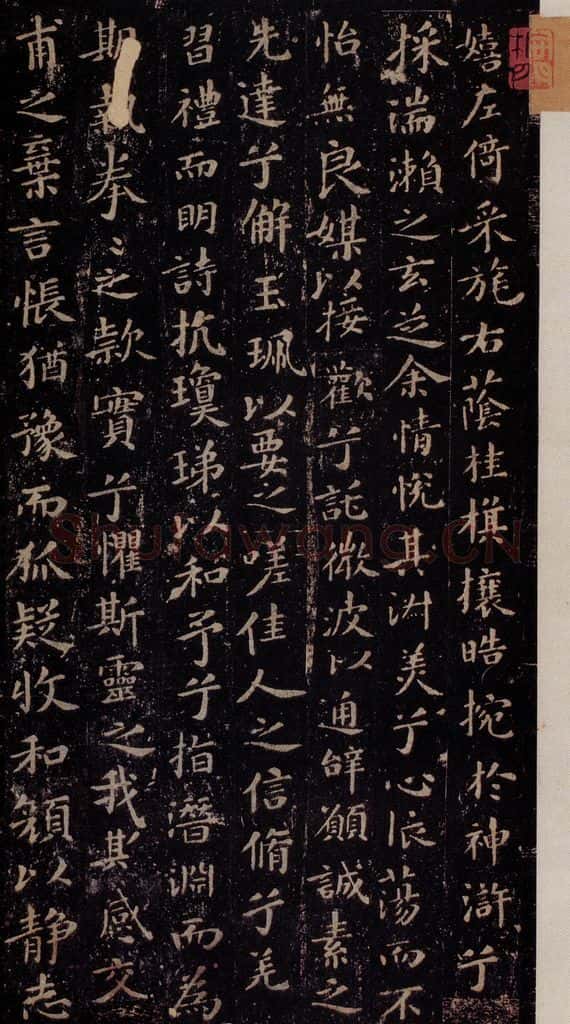 嬉左倚采旄右蔭桂旗攘皓捥於神滸兮
採湍瀨之玄芝余情悅其淑美兮心振蕩而不
怡無良媒以接歡兮託微波以通辭願誠素之
先達兮解玉珮以要之嗟佳人之信脩兮羌
習禮而明詩抗瓊珶以和予兮指潛淵而為
期執拳〻之款實兮懼斯靈之我欺感交
甫之棄言悵猶豫而狐疑收和顏以靜志
Shufawang.CN